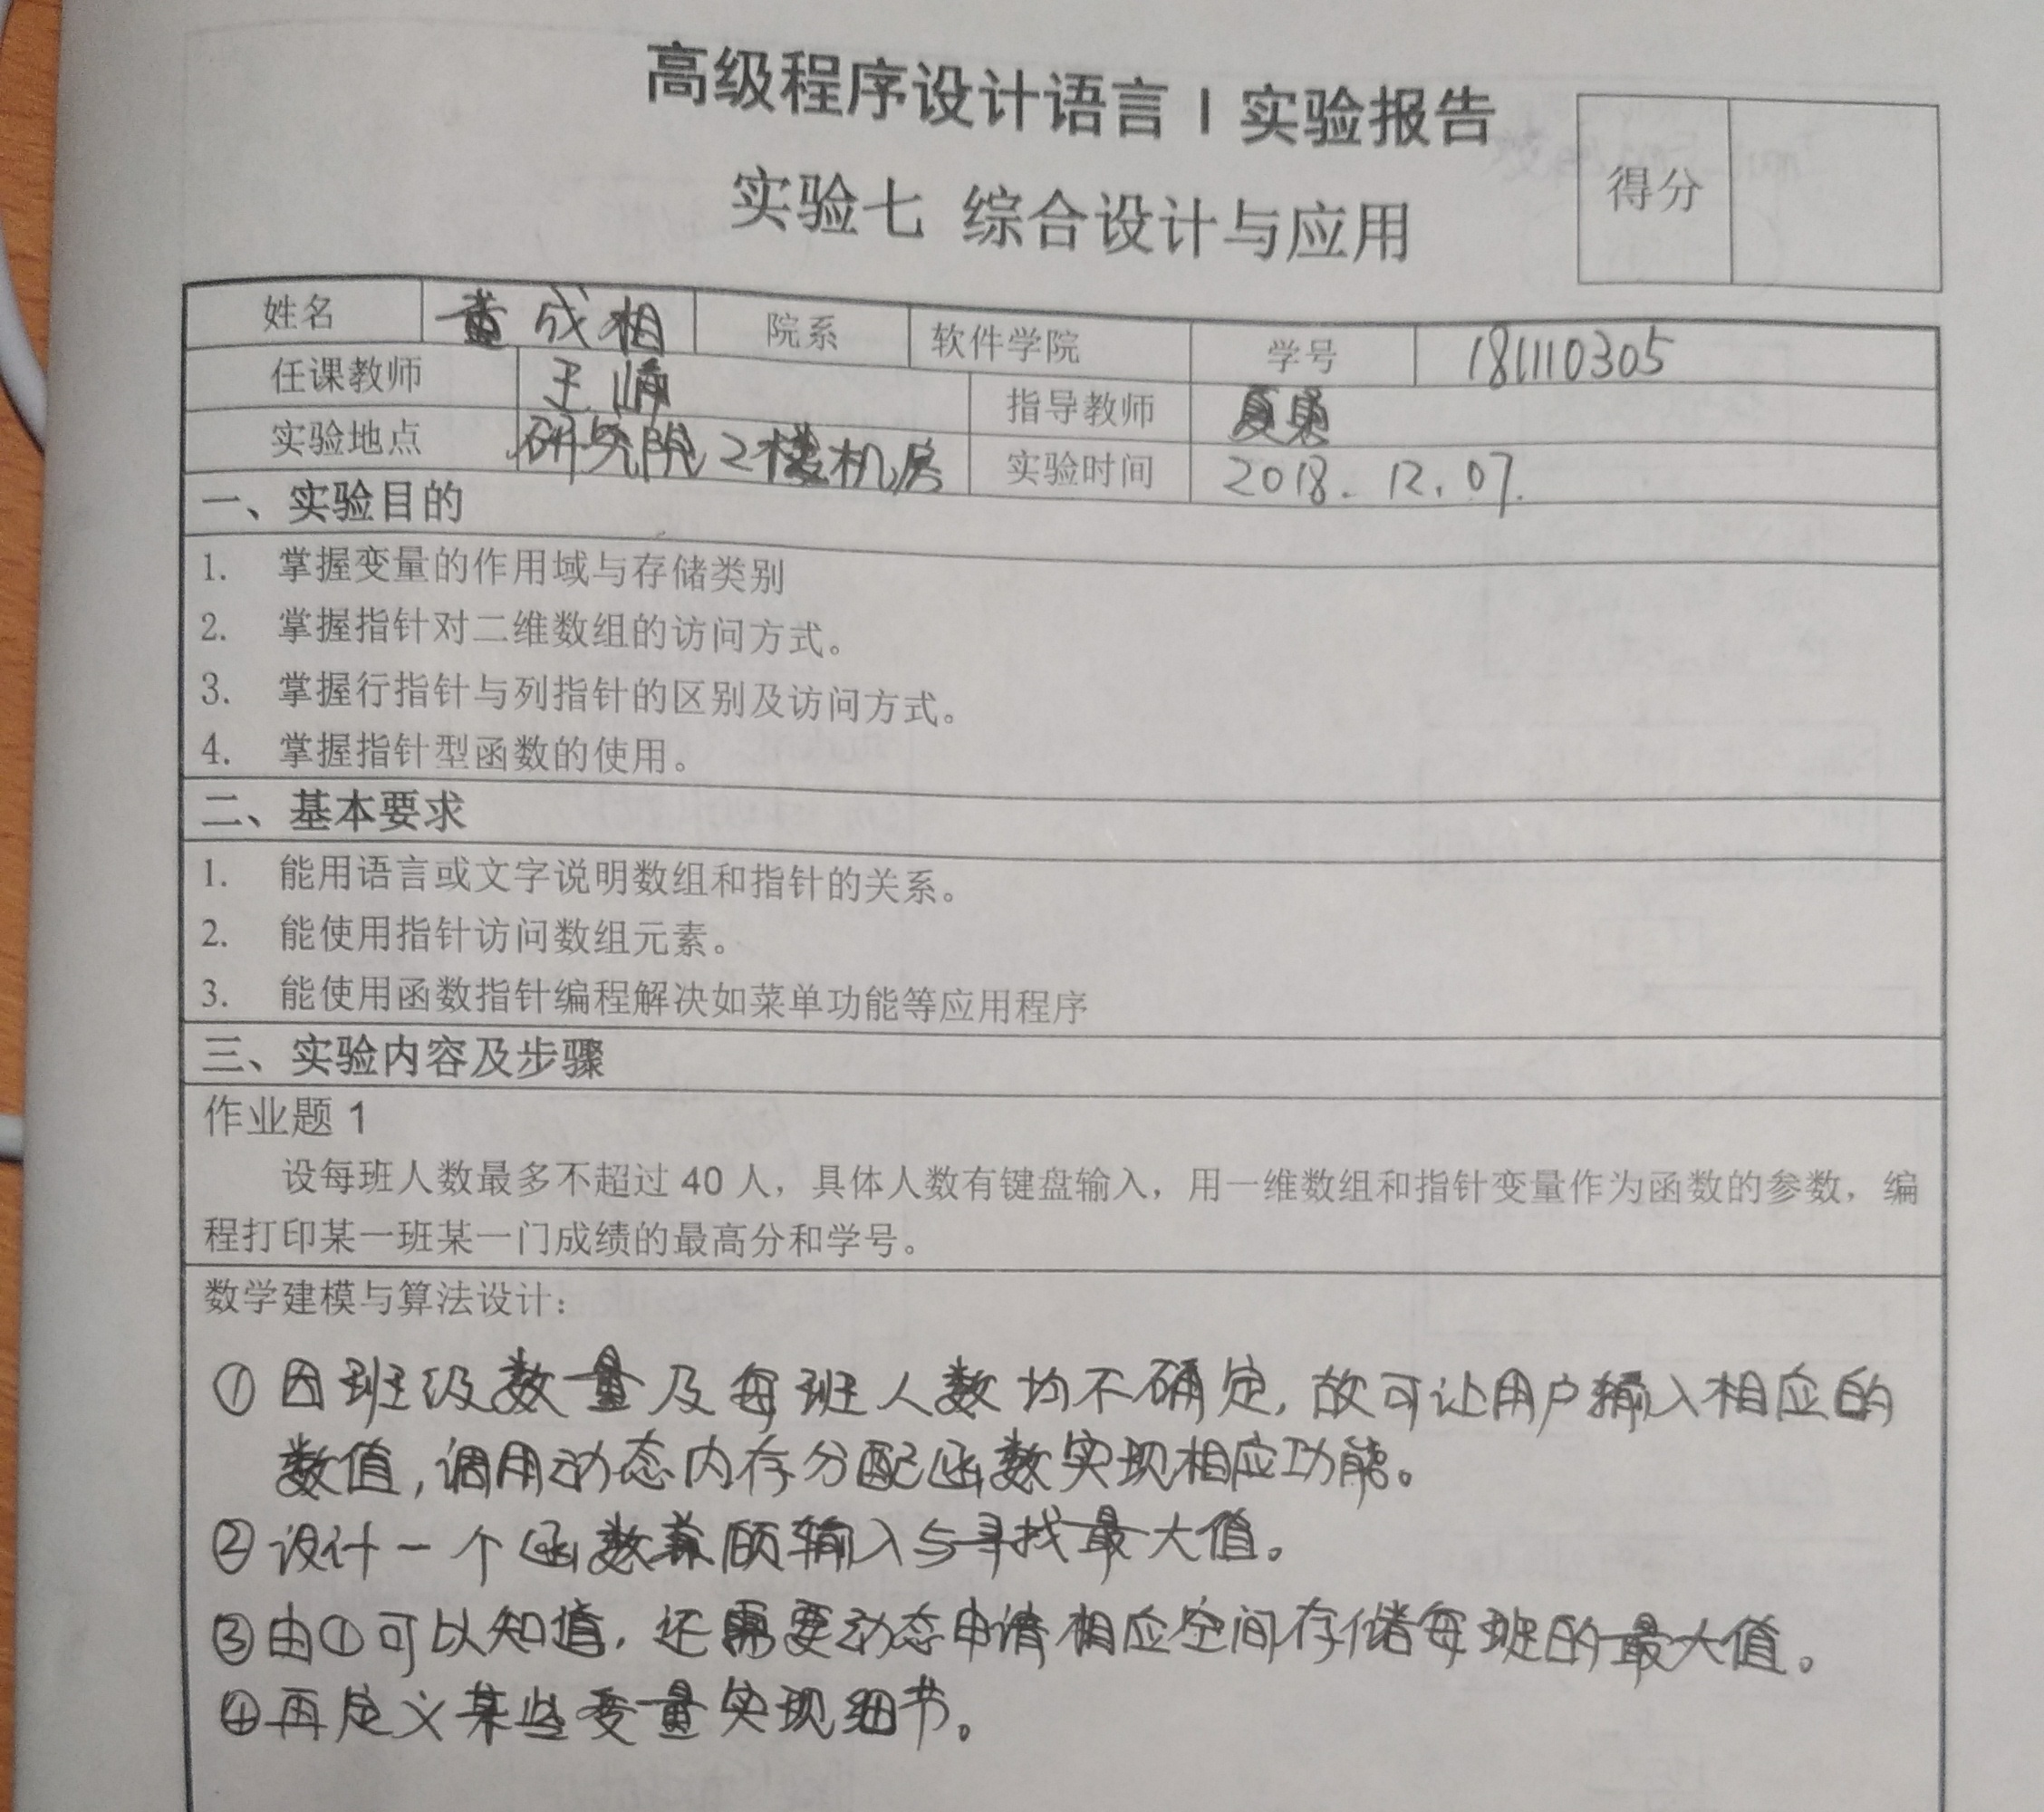 高级程序设计语言 I 实验报告
实验七 综合设计与应用
得分
姓名 黄成相 院系 软件学院 学号 181110305
任课教师 王峥 指导教师
实验地点 研究院2楼机房 实验时间 2018.12.07.
一、实验目的
1. 掌握变量的作用域与存储类别
2. 掌握指针对二维数组的访问方式。
3. 掌握行指针与列指针的区别及访问方式。
4. 掌握指针型函数的使用。
二、基本要求
1. 能用语言或文字说明数组和指针的关系。
2. 能使用指针访问数组元素。
3. 能使用函数指针编程解决如菜单功能等应用程序
三、实验内容及步骤
作业题 1
设每班人数最多不超过 40 人，具体人数有键盘输入，用一维数组和指针变量作为函数的参数，编
程打印某一班某一门成绩的最高分和学号。
数学建模与算法设计：
①因班级数量及每班人数均不确定,故可让用户输入相应的
数值,调用动态内存分配函数实现相应功能。
②设计一个函数兼顾输入与寻找最大值。
③由①可以知道,还需要动态申请相应空间存储每班的最大值。
④再定义某些变量实现细节。